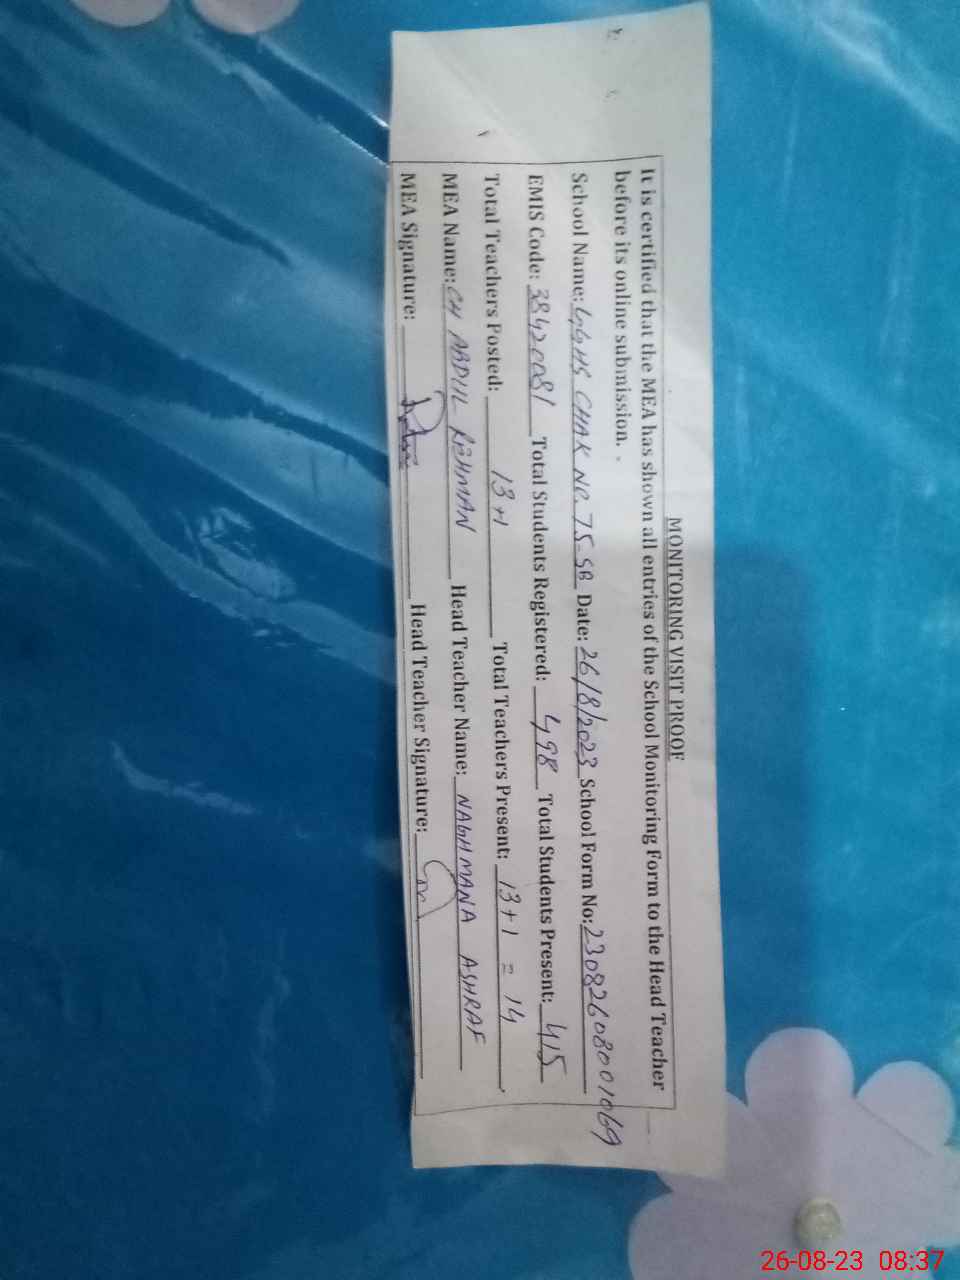 MONITORING VISIT PROOF
It is certified that the MEA has shown all entries of the School Monitoring Form to the Head Teacher
before its online submission.
School Name: GGHS CHAK NO. 75-SB Date: 26/8/2023 School Form No: 23082608001069
EMIS Code: 38420081 Total Students Registered: 498 Total Students Present: 415
Total Teachers Posted: 13+1 Total Teachers Present: 13+1 = 14
MEA Name: CH ABDUL REHMAN Head Teacher Name: NAGHMANA ASHRAF
MEA Signature: Head Teacher Signature:
26-08-23 08:37